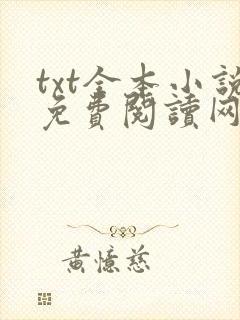 txt全本小說
免費閱讀网
黃憶慈